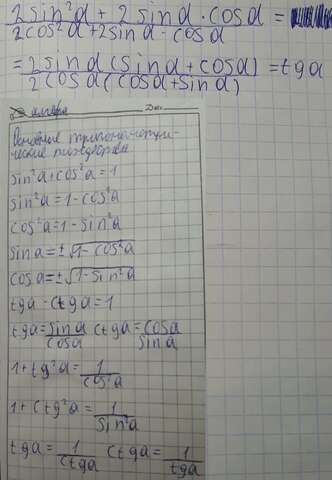 2sin²α + 2sinα · cosα =
2cos²α + 2sinα · cosα
= 2sinα (sinα + cosα) = tgα
2cosα (cosα + sinα)
алгебра
Основные тригонометри-
ческие тождества
sin²a + cos²a = 1
sin²a = 1 - cos²a
cos²a = 1 - sin²a
sina = ±√1 - cos²a
cosa = ±√1 - sin²a
tga · ctga = 1
tga = sina/cosa ctga = cosa/sina
1 + tg²a = 1/cos²a
1 + ctg²a = 1/sin²a
tga = 1/ctga ctga = 1/tga